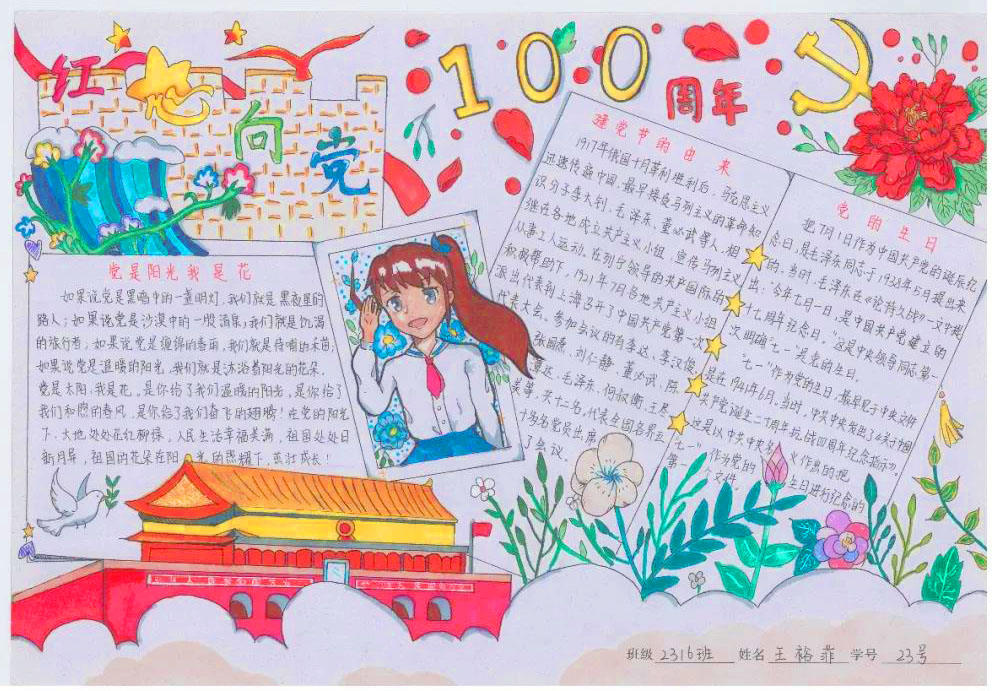 红心向党
100
周年
党是阳光我是花
如果说党是黑暗中的一盏明灯,我们就是黑夜里的
路人;如果说党是沙漠中的一股清泉,我们就是饥渴
的旅行者;如果说党是绵绵的春雨,我们就是待哺的禾苗;
如果说党是温暖的阳光,我们就是沐浴着阳光的花朵。
党是太阳,我是花。是你给了我们温暖的阳光,是你给了
我们和煦的春风,是你给了我们奋飞的翅膀!在党的阳光
下,大地处处花红柳绿,人民生活幸福美满,祖国处处日
新月异,祖国的花朵在阳光的照耀下,茁壮成长!
建党节的由来
1917年俄国十月革利胜利后,马克思主义
迅速传遍中国,最早接受马列主义的革命知
识分子李大钊、毛泽东、董必武等人,相
继在各地成立共产主义小组,宣传马列主义
从事工人运动。在列宁领导的共产国际的
积极帮助下,1921年7月各地共产主义小组
派出代表到上海召开了中国共产党第一次
代表大会。参加会议的有李达、李汉俊、
张国焘、刘仁静、董必武、陈
潭达、毛泽东、何叔衡、王尽
美等,共十二名,代表全国各界五
十多名党员出席
了会议。
党的生日
把7月1日作为中国共产党的诞辰纪
念日,是毛泽东同志于1938年5月提出来
的。当时,毛泽东在《论持久战》一文中提
出:“今年七月一日,是中国共产党建立的
十七周年纪念日。”这是中央领导同志第一
次明确“七一”是党的生日。
“七一”作为党的生日,最早见于中央文件
是在1941年6月。当时,中共中央发出了《关于中国
共产党诞生二十周年抗战四周年纪念指示》。
这是以中共中央名义作出的把
“七一”作为党的生日进行纪念的
第一个文件。
班级 2316班 姓名 王裕菲 学号 23号